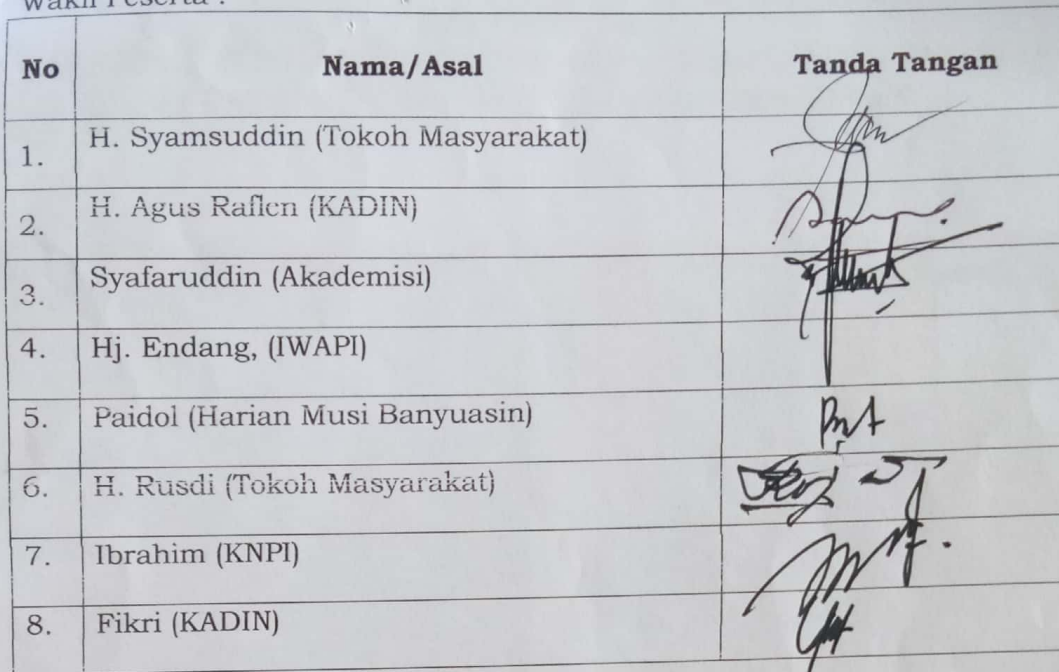 Wakil Peserta :
No Nama/Asal Tanda Tangan
1. H. Syamsuddin (Tokoh Masyarakat)
2. H. Agus Raflen (KADIN)
3. Syafaruddin (Akademisi)
4. Hj. Endang, (IWAPI)
5. Paidol (Harian Musi Banyuasin)
6. H. Rusdi (Tokoh Masyarakat)
7. Ibrahim (KNPI)
8. Fikri (KADIN)